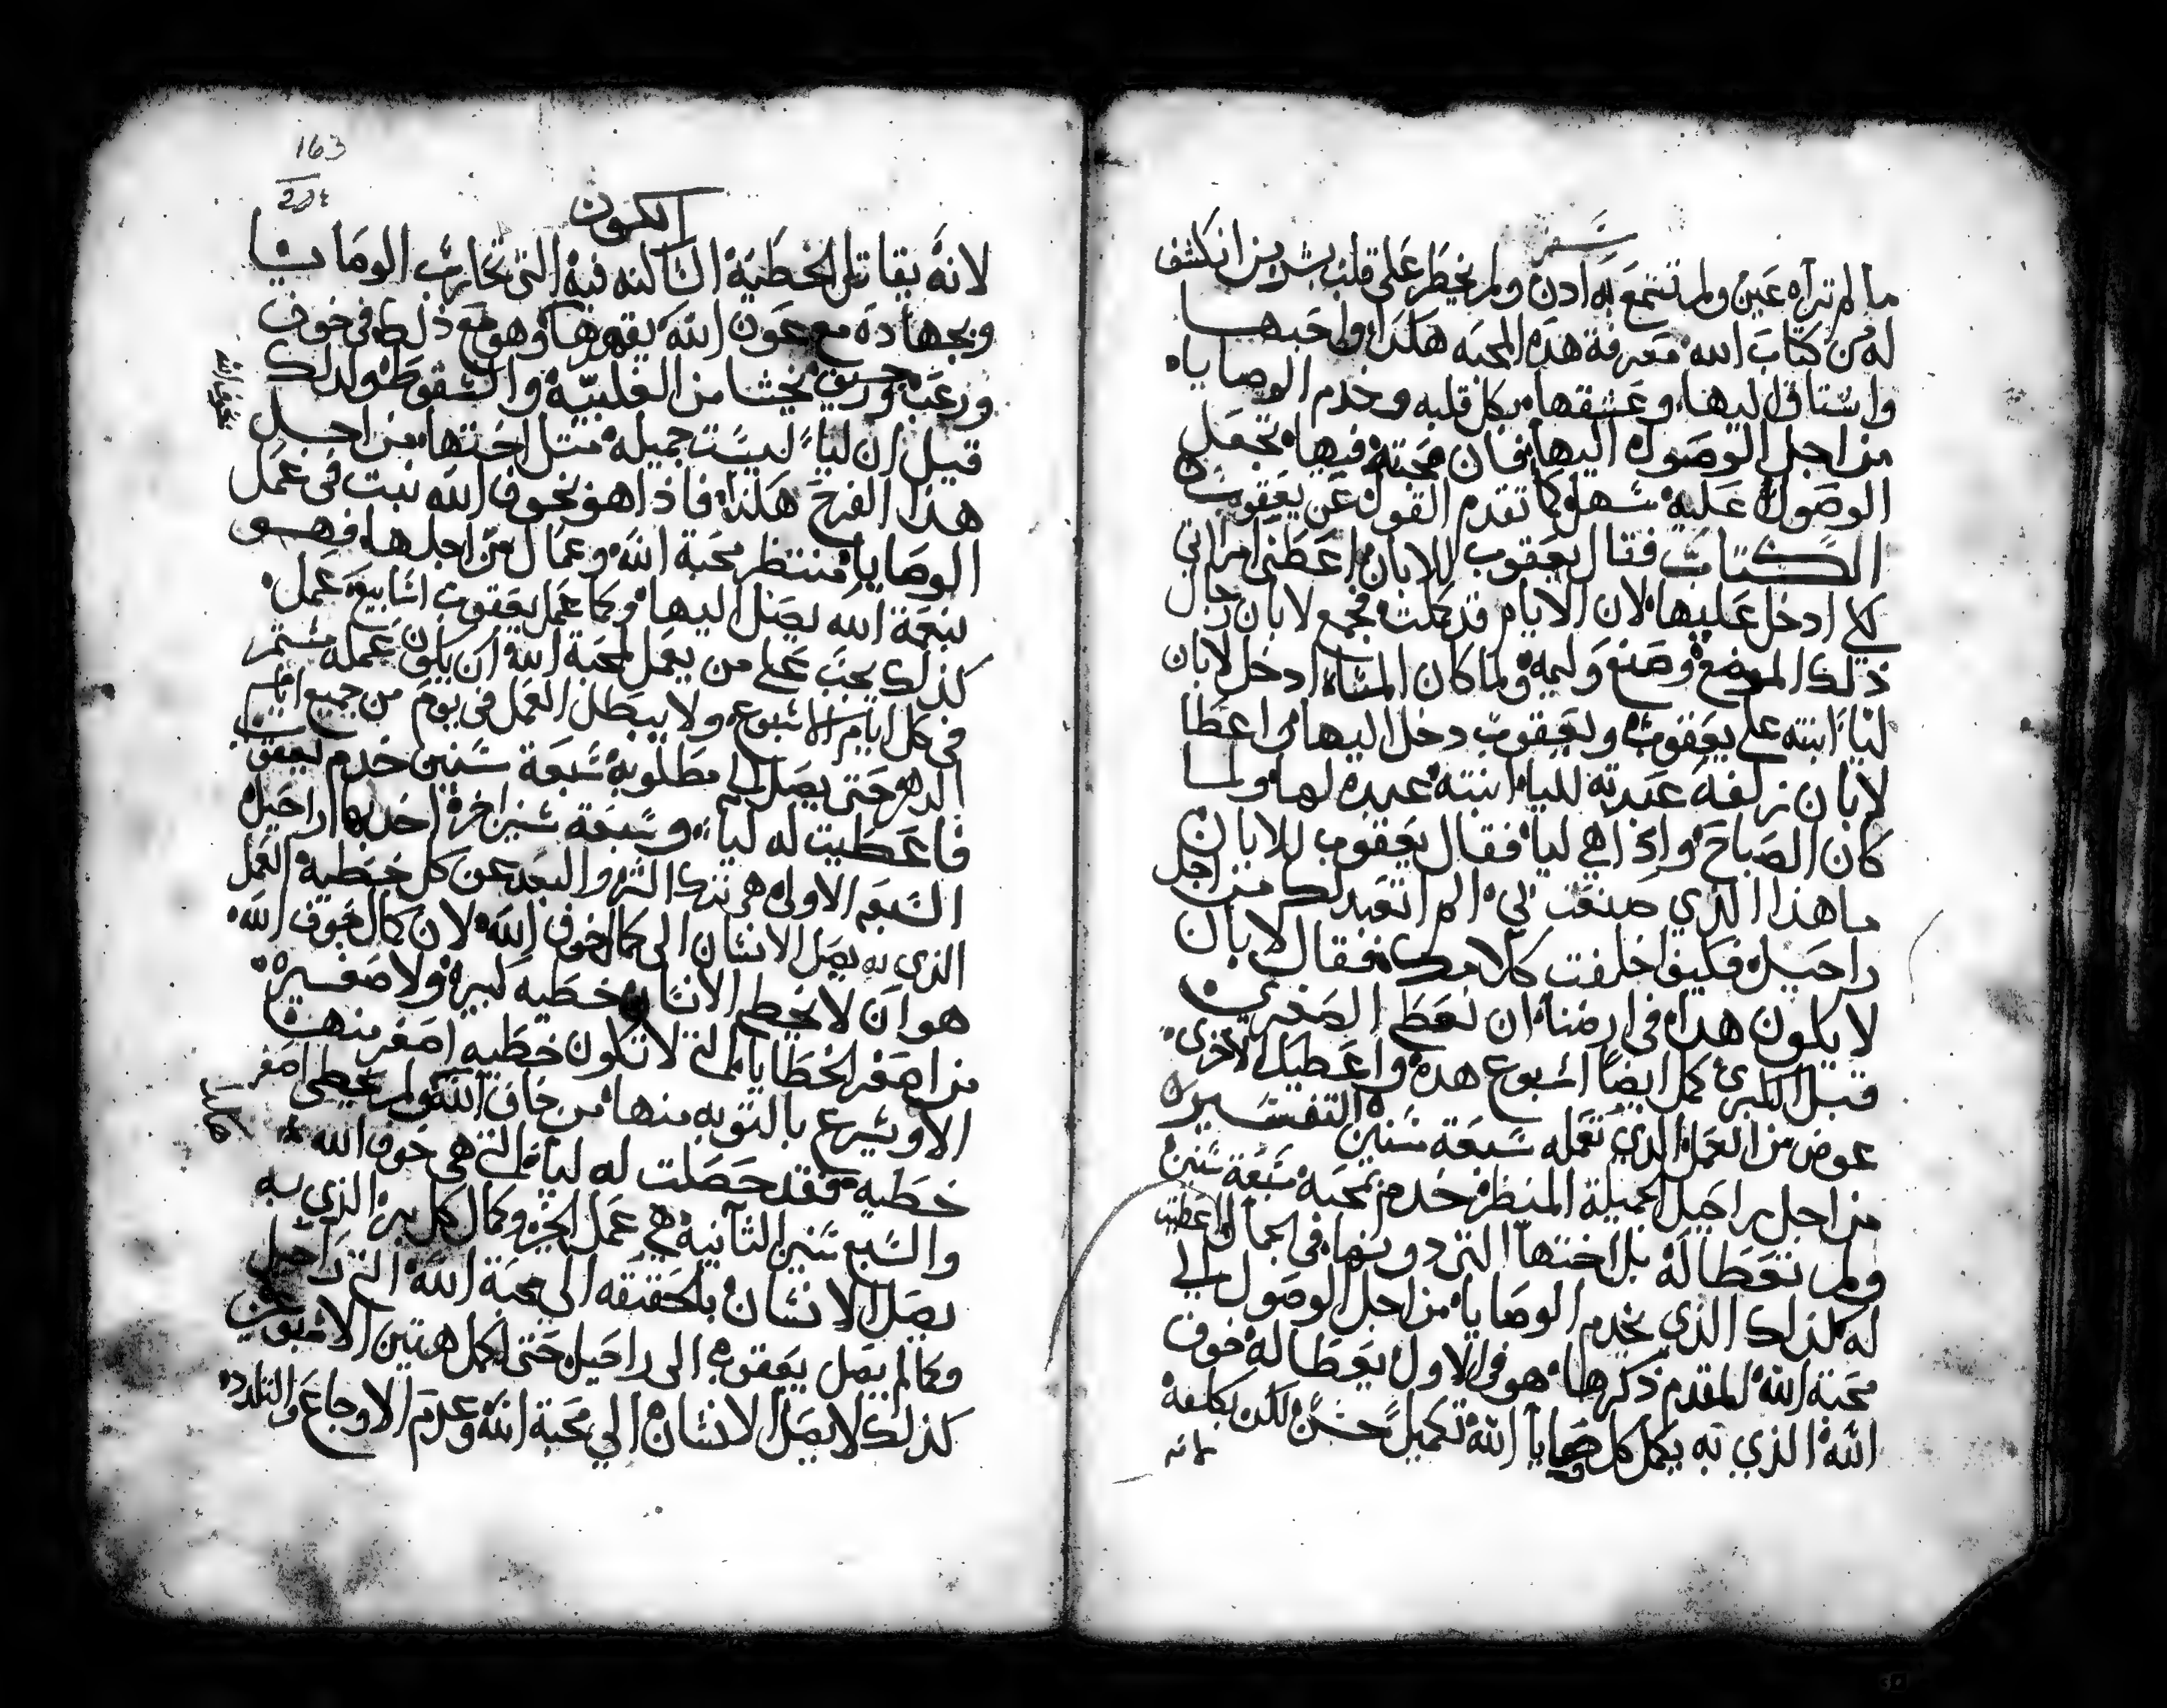 سفر
ما لم تراه عين ولم تسمع به ادن ولم يخطر على قلب بشر من انكشف
له من كتاب الله معرفة هده المحبه هكدا واحبها
واشتاق اليها وعشقها بكل قلبه وخدم الوصايا
من اجل الوصول اليها فان محبته فيها تجعل
الوصول عليه سهل كما تقدم القول عن يعقوب
الكتاب فقال يعقوب للابان اعطنى امراتي
لكي ادخل عليها لان الايام قد كملت فجمع لابان رجال
ذلك الموضع وصنع وليمه ولما كان المساء ادخل لابان
ليا ابنته على يعقوب ويعقوب دخل اليها واعطا
لابان زلفه عبدته لليا ابنته عبده لها ولما
كان الصباح واذا هي ليا فقال يعقوب للابان
ما هذا الذي صنعت بي الم اتعبد لك من اجل
راحيل فكيف اخلفت كلامك فقال لابان
لا يكون هداه فى ارضنا ان نعطى الصغرى
قبل الكبرى كمل ايضا اسبوع هده واعطيك الاخرى
عوض من العمل الذي تعمله سبعة سنين التفسير
من اجل راحيل الجميلة المنظر خدم بمحبه سبعة سنين
ولم تعطا له بل اختها التى دونها فى الجمال اعطيت
له كذلك الذي يخدم الوصايا من اجل الوصول الي
محبة الله المقدم ذكرها هو فى الاول يعطا له خوف
الله الذي به يكمل كل وصايا الله تكميل حسن لكن بكلفة
لانه
163
الكون
لانه يقاتل الخطية الساكنه فيه التى تحارب الوصايا
وبجهاده مع عون الله يقهرها وهو مع ذلك فى خوف
ورعب يخشا من الغلبة والسقوط ولدلك
قيل ان ليا ليست جميله مثل اختها من اجل
هذا الفرح هكذا فاذا هو بخوف الله ثبت فى عمل
الوصايا منتظر محبة الله وعمال من اجلها فهو
بنعمة الله يصل اليها وكما عمل يعقوب اسابيع عمل
كذلك يجب على من يعمل لمحبة الله ان يكون عمله مستمر
في كل ايام الاسبوع ولا يبطل العمل فى يوم من جميع ايام
الدهر حتى يصل الى مطلوبه سبعة سنين خدم يعقوب
فاعطيت له ليا وسبعة سنين اخرة اخد بها راحيل
السبع الاولى هم ترك الشر والبعد عن كل خطية العمل
الذى به يصل الانسان الى كمال خوف الله لان كمال خوف الله
هو ان لا يخطى الانسان خطيه كبيرة ولا صغيره
من اصغر الخطايا التى لا تكون خطيه اصغر منها
الا ويسرع بالتوبه منها من خاف الله ولم يخطى اصغر
خطيه فقد حصلت له ليا التى هى خوف الله
والسبع سنين الثانية هي عمل الخير وكمال كل بر الذي به
يصل الانسان بالحقيقه الى محبة الله التى راحيل
وكما لم يصل يعقوب الى راحيل حتى اكمل هتين الاسبوعين
كذلك لا يصل الانسان الي محبة الله وعدم الاوجاع والتلدد